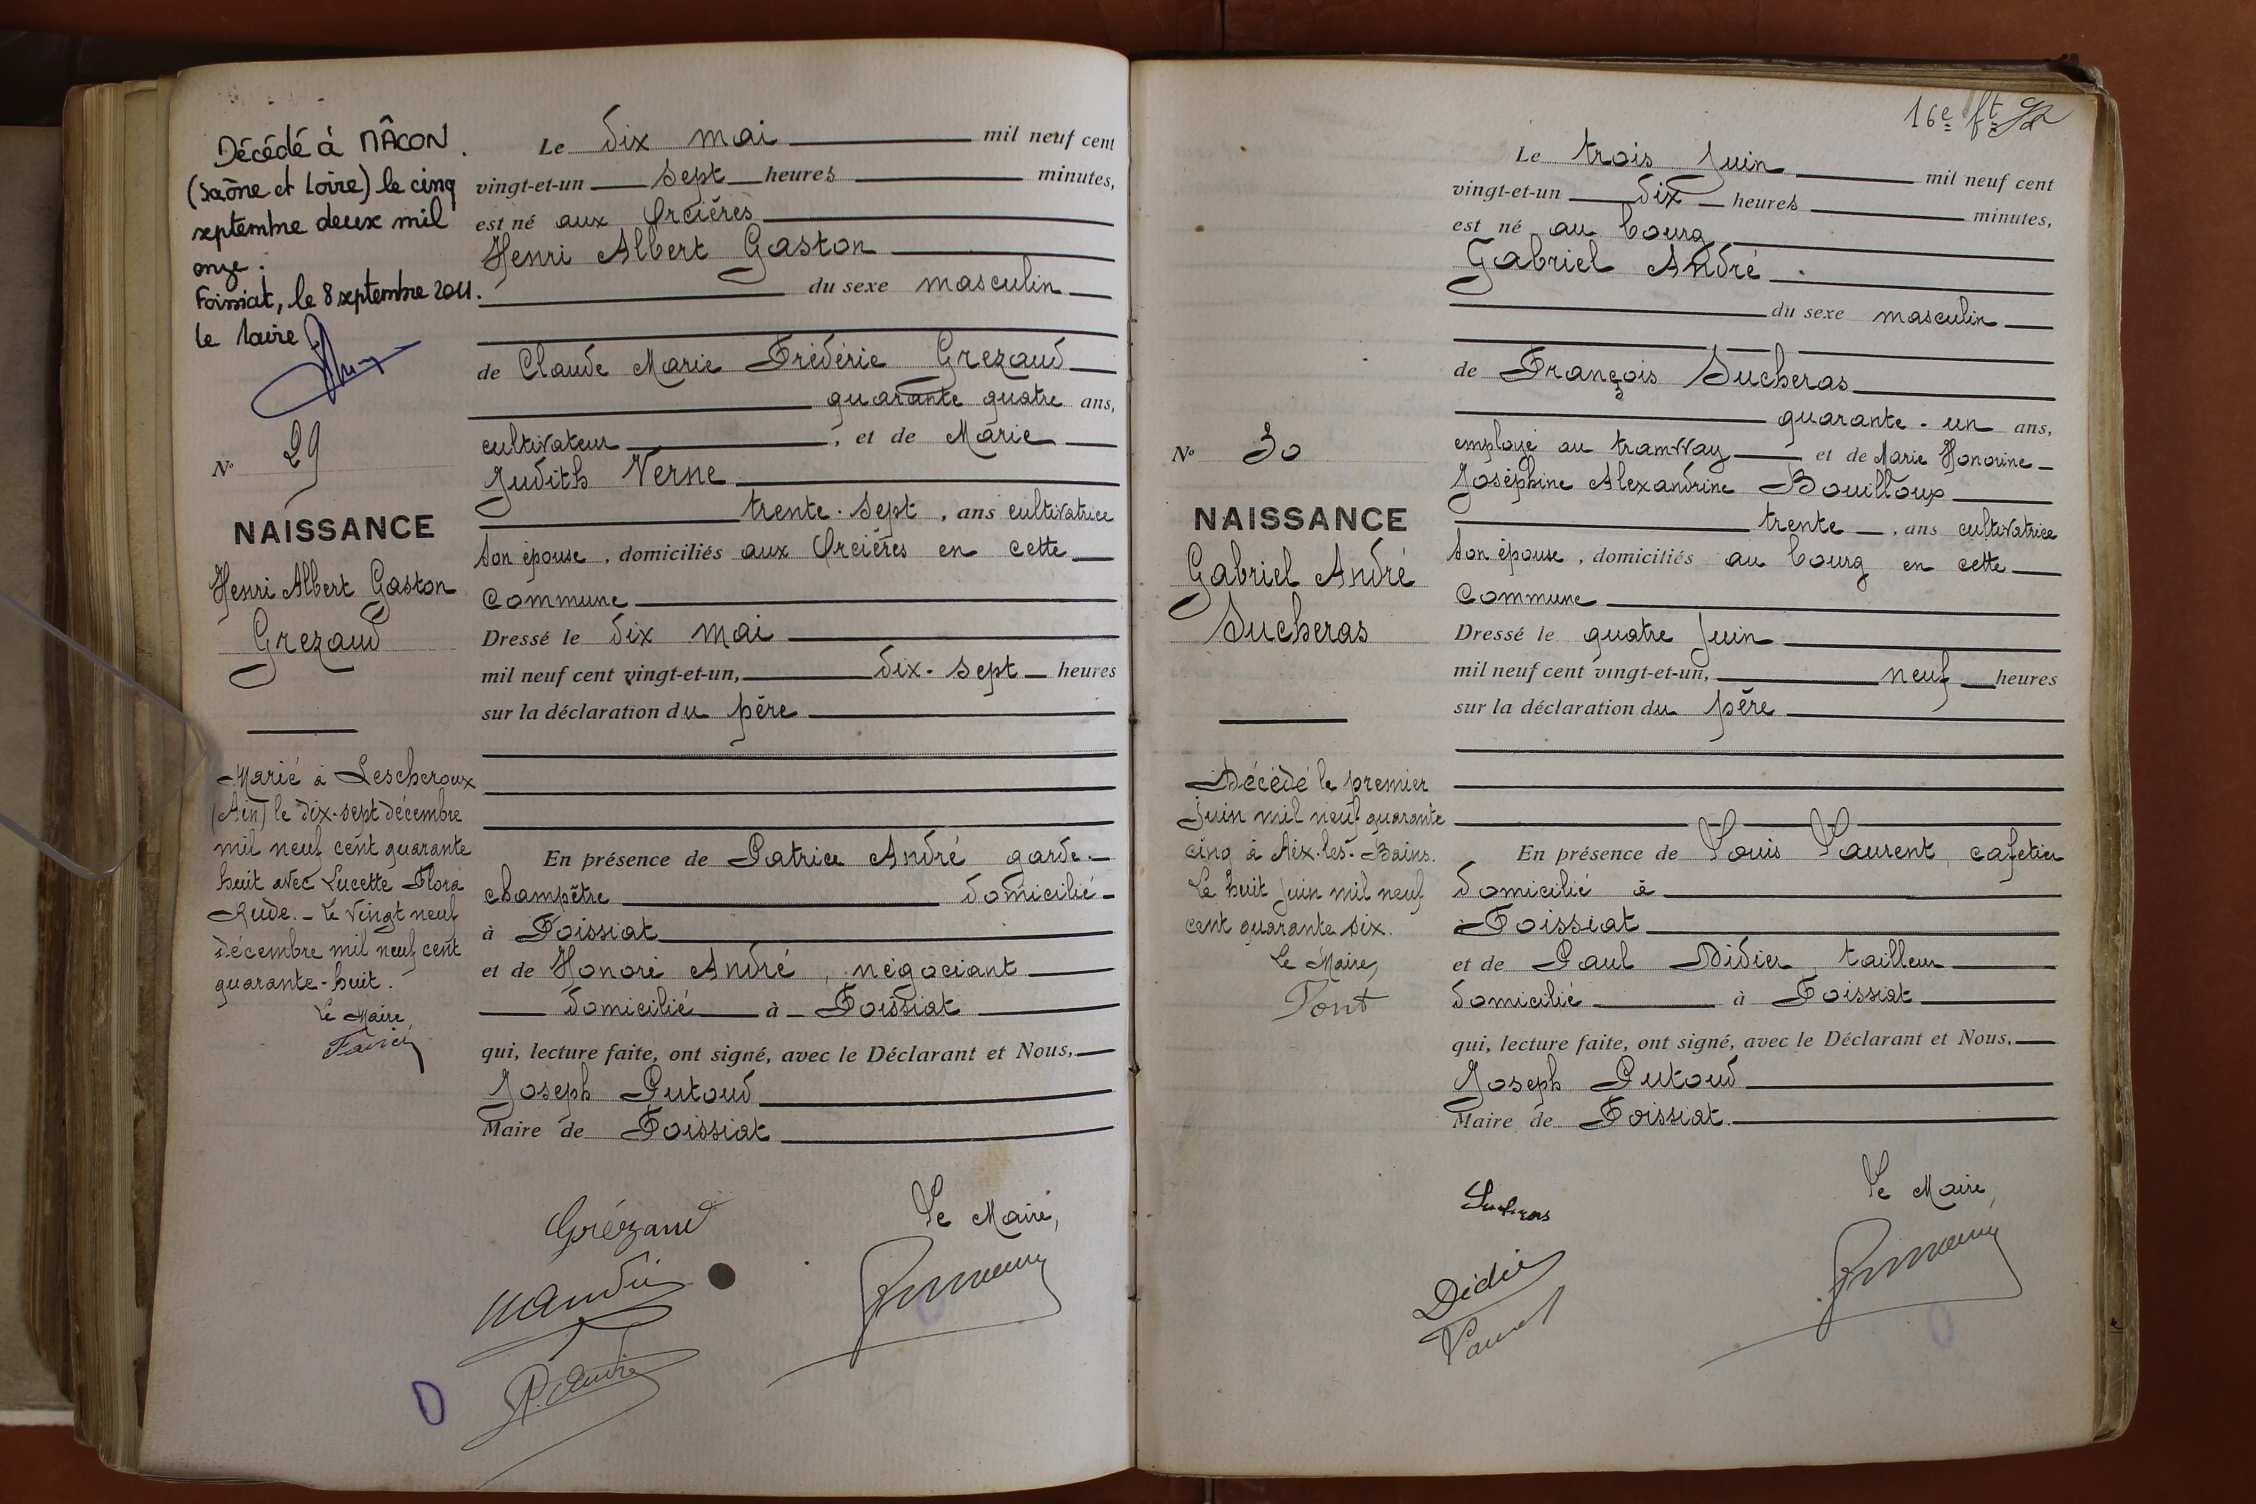 Décédé à MÂCON.
(Saône et Loire) le cinq
septembre deux mil
onze.
Foissiat, le 8 septembre 2011.
Le Maire
N° 29
NAISSANCE
Henri Albert Gaston
Grezaud
Marié à Lescheroux
(Ain) le dix-sept décembre
mil neuf cent quarante
huit avec Lucette Flora
Rude. - Le vingt neuf
décembre mil neuf cent
quarante-huit.
Le Maire
Le dix mai mil neuf cent
vingt-et-un sept heures minutes,
est né aux Orcières
Henri Albert Gaston
du sexe masculin
de Claude Marie Frédéric Grezaud
quarante quatre ans,
cultivateur, et de Marie
Judith Verne
trente-sept, ans cultivatrice
son épouse, domiciliés aux Orcières en cette
commune
Dressé le dix mai
mil neuf cent vingt-et-un, dix-sept heures
sur la déclaration du père
En présence de Patrice André garde-
champêtre domicilié
à Foissiat
et de Honoré André, négociant
domicilié à Foissiat
qui, lecture faite, ont signé, avec le Déclarant et Nous,
Joseph Putoud
Maire de Foissiat
Grézaud
Le Maire,
P. André
16e ft
N° 30
NAISSANCE
Gabriel André
Sucheras
Décédé le premier
juin mil neuf quarante
cinq à Aix-les-Bains.
Le huit juin mil neuf
cent quarante six.
Le Maire
Font
Le trois Juin mil neuf cent
vingt-et-un dix heures minutes,
est né au bourg
Gabriel André
du sexe masculin
de François Sucheras
quarante-un ans,
employé au tramway et de Marie Honorine
Joséphine Alexandrine Bouilloux
trente, ans cultivatrice
son épouse, domiciliés au bourg en cette
commune
Dressé le quatre Juin
mil neuf cent vingt-et-un, neuf heures
sur la déclaration du père
En présence de Louis Laurent, cafetier
domicilié à
Foissiat
et de Paul Didier, tailleur
domicilié à Foissiat
qui, lecture faite, ont signé, avec le Déclarant et Nous.
Joseph Putoud
Maire de Foissiat.
Sucheras
Le Maire,
Didier
Laurent